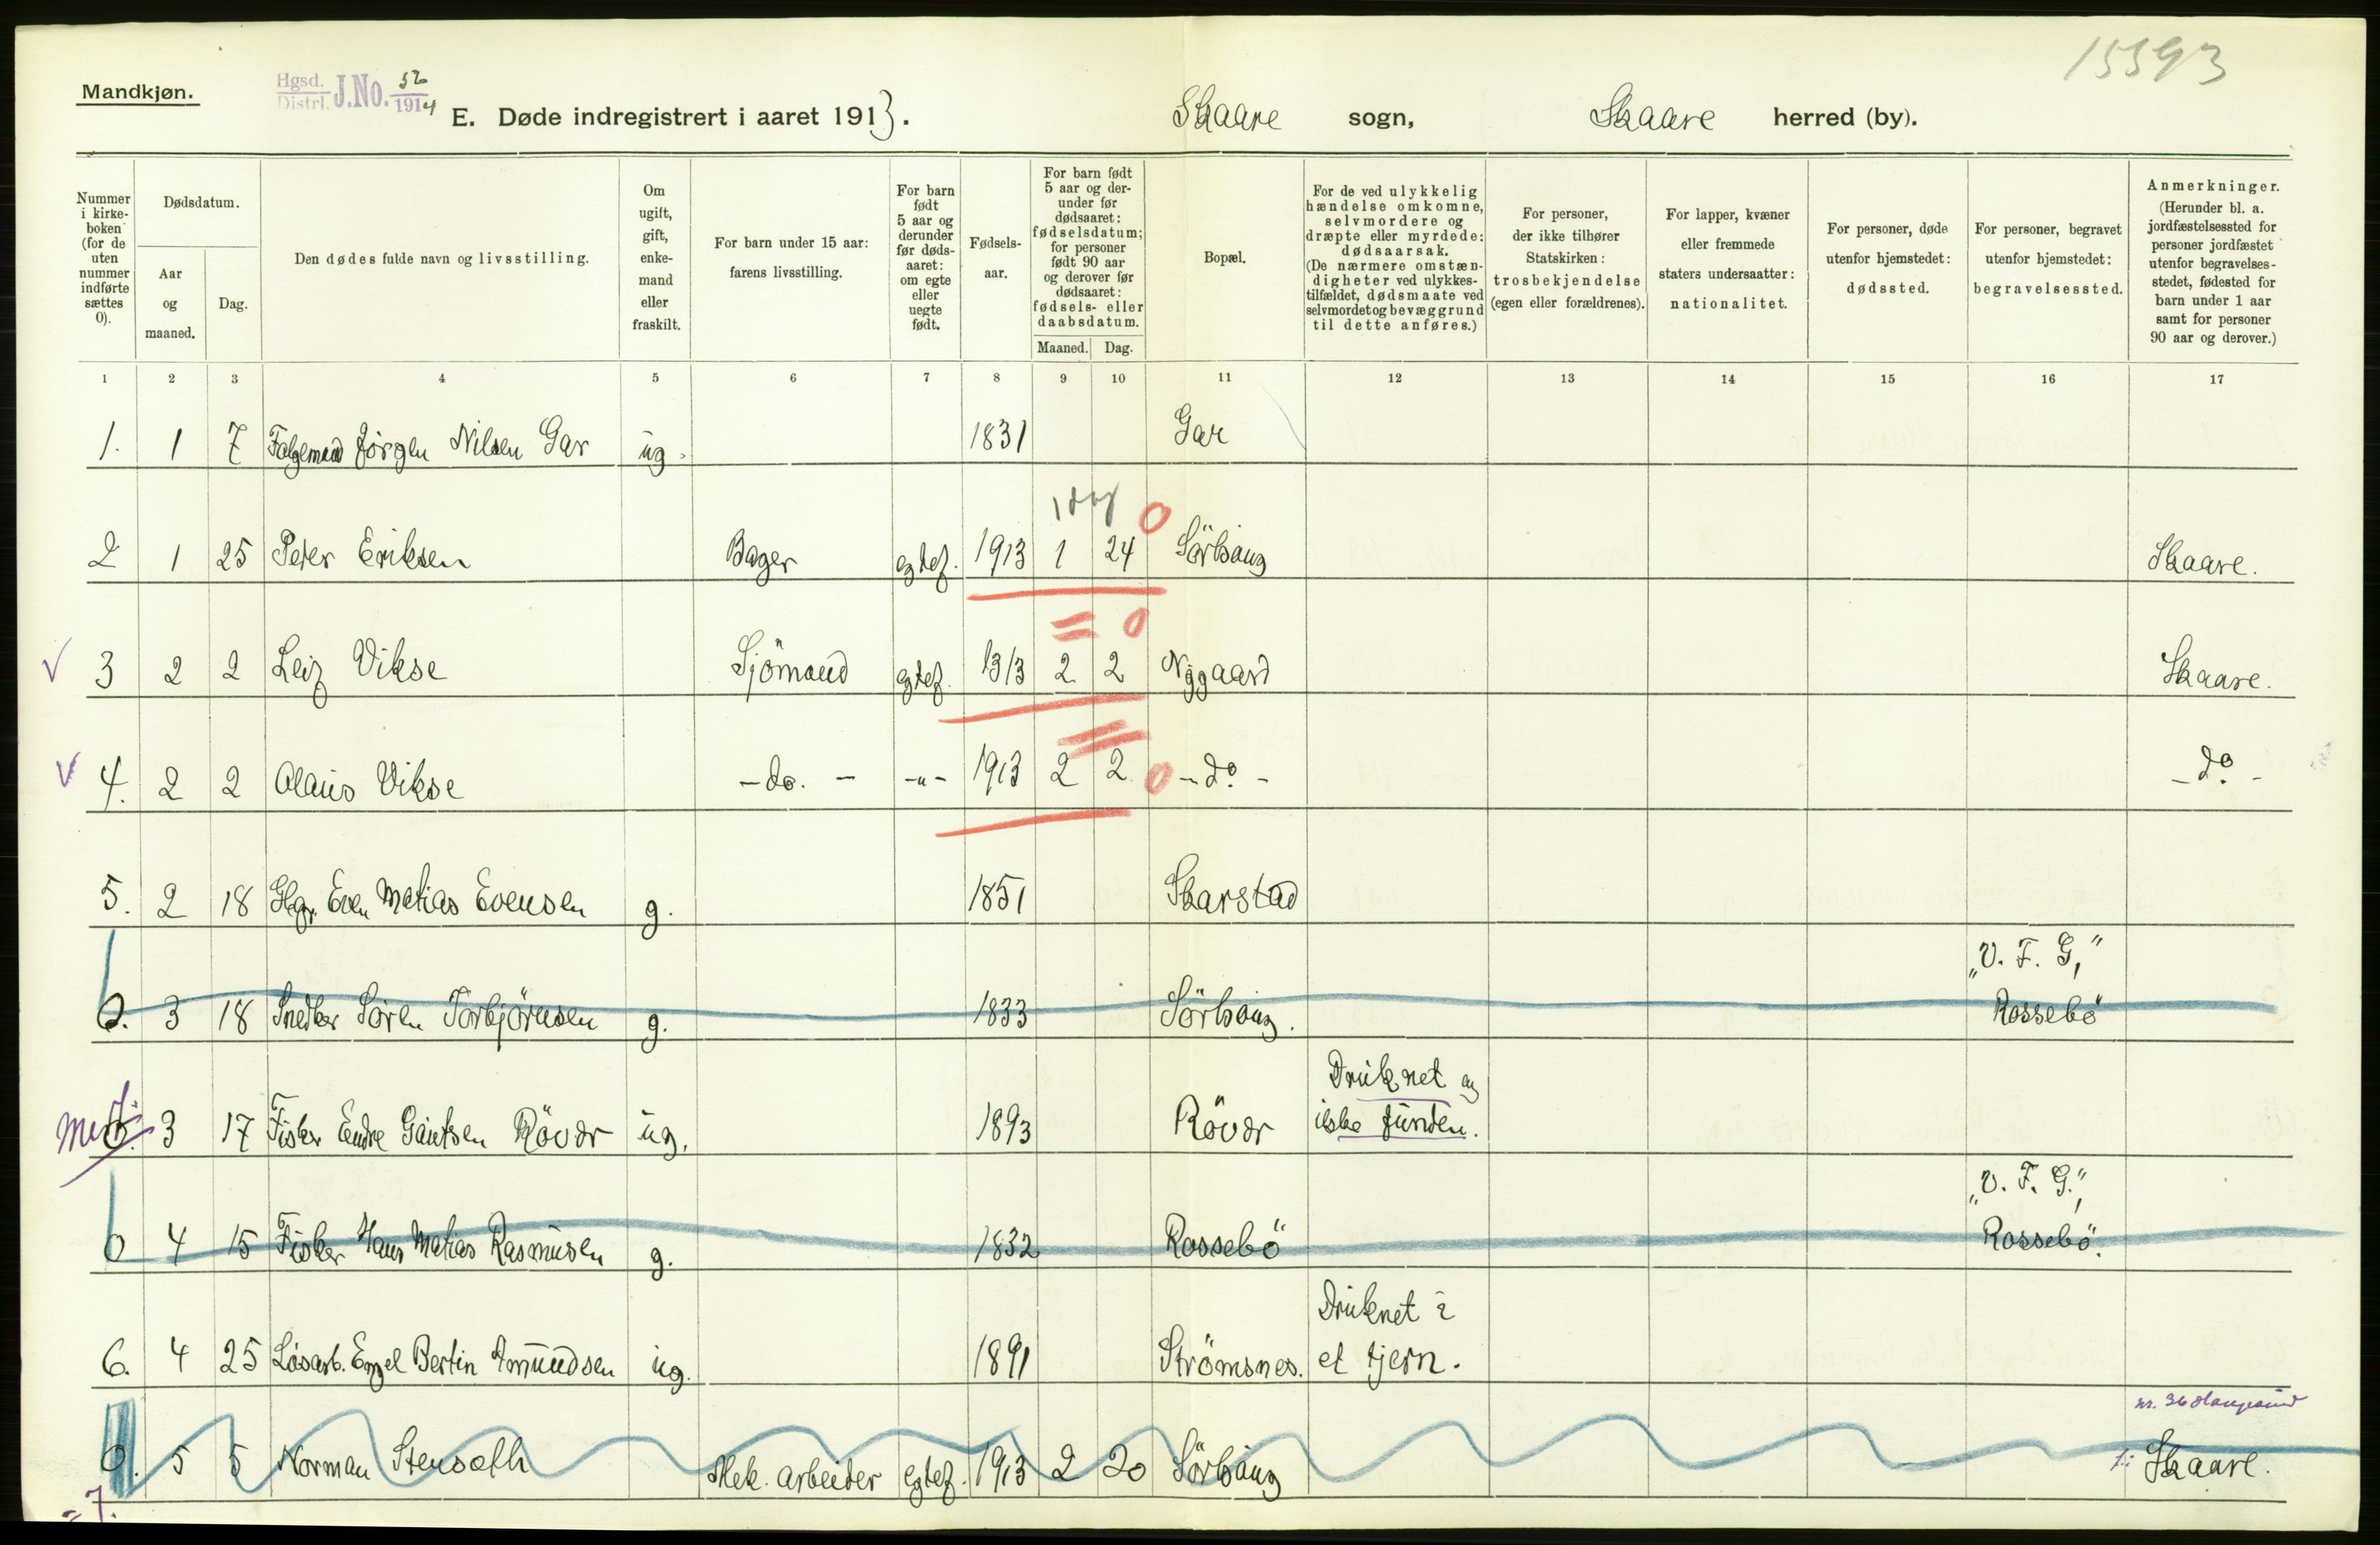 15593
Mandkjøn.
Hgsd. Distrl. J.No. 52 1914
E. Døde indregistrert i aaret 1913. Skaare sogn, Skaare herred (by).
Nummer i kirke- boken (for de uten nummer indførte sættes 0).
Dødsdatum.
Aar og maaned.
Dag.
Den dødes fulde navn og livsstilling.
Om ugift, gift, enke- mand eller fraskilt.
For barn under 15 aar: farens livsstilling.
For barn født 5 aar og derunder før døds- aaret: om egte eller uegte født.
Fødsels- aar.
For barn født 5 aar og der- under før dødsaaret: fødselsdatum; for personer født 90 aar og derover før dødsaaret: fødsels- eller daabsdatum.
Maaned. Dag.
Bopæl.
For de ved ulykkelig hændelse omkomne, selvmordere og dræpte eller myrdede: dødsaarsak. (De nærmere omstæn- digheter ved ulykkes- tilfældet, dødsmaate ved selvmordet og bevæggrund til dette anføres.)
For personer, der ikke tilhører Statskirken: trosbekjendelse (egen eller forældrenes).
For lapper, kvæner eller fremmede staters undersaatter: nationalitet.
For personer, døde utenfor hjemstedet: dødssted.
For personer, begravet utenfor hjemstedet: begravelsessted.
Anmerkninger. (Herunder bl. a. jordfæstelsessted for personer jordfæstet utenfor begravelses- stedet, fødested for barn under 1 aar samt for personer 90 aar og derover.)
1 2 3 4 5 6 7 8 9 10 11 12 13 14 15 16 17
1. 1 7 Jørgen Nilsen Gar ug. 1831 Gar
1 dag 0
2 1 25 Peter Eriksen Bager egtef. 1913 1 24 Sørhaug Skaare.
= 0
v 3 2 2 Leif Vikse Sjömand egtef. 1913 2 2 Nygaard Skaare.
v 4. 2 2 Olaus Vikse - do. - -"- 1913 2 2 0 - do - - do -
5. 2 18 Even Matias Evensen g. 1851 Skarstad
"V. F. G,"
0. 3 18 Snedker Sören Torbjörnsen g. 1833 Sörhaug. Rossebö
Druknet og
0. 3 17 Fisker Endre Gautsen Rövær ug. 1893 Rövær ikke funden.
"V. F. G.",
0 4 15 Fisker Hans Matias Rasmusen g. 1832 Rossebö Rossebö.
Druknet i
6. 4 25 Løsarb. Engel Bertin Amundsen ug. 1891 Strömsnes. et tjern.
nr. 36 Haugesund
0. 5 5 Norman Stensæth Mek. arbeider egtef. 1913 2 20 Sörhaug Skaare.
= 7.